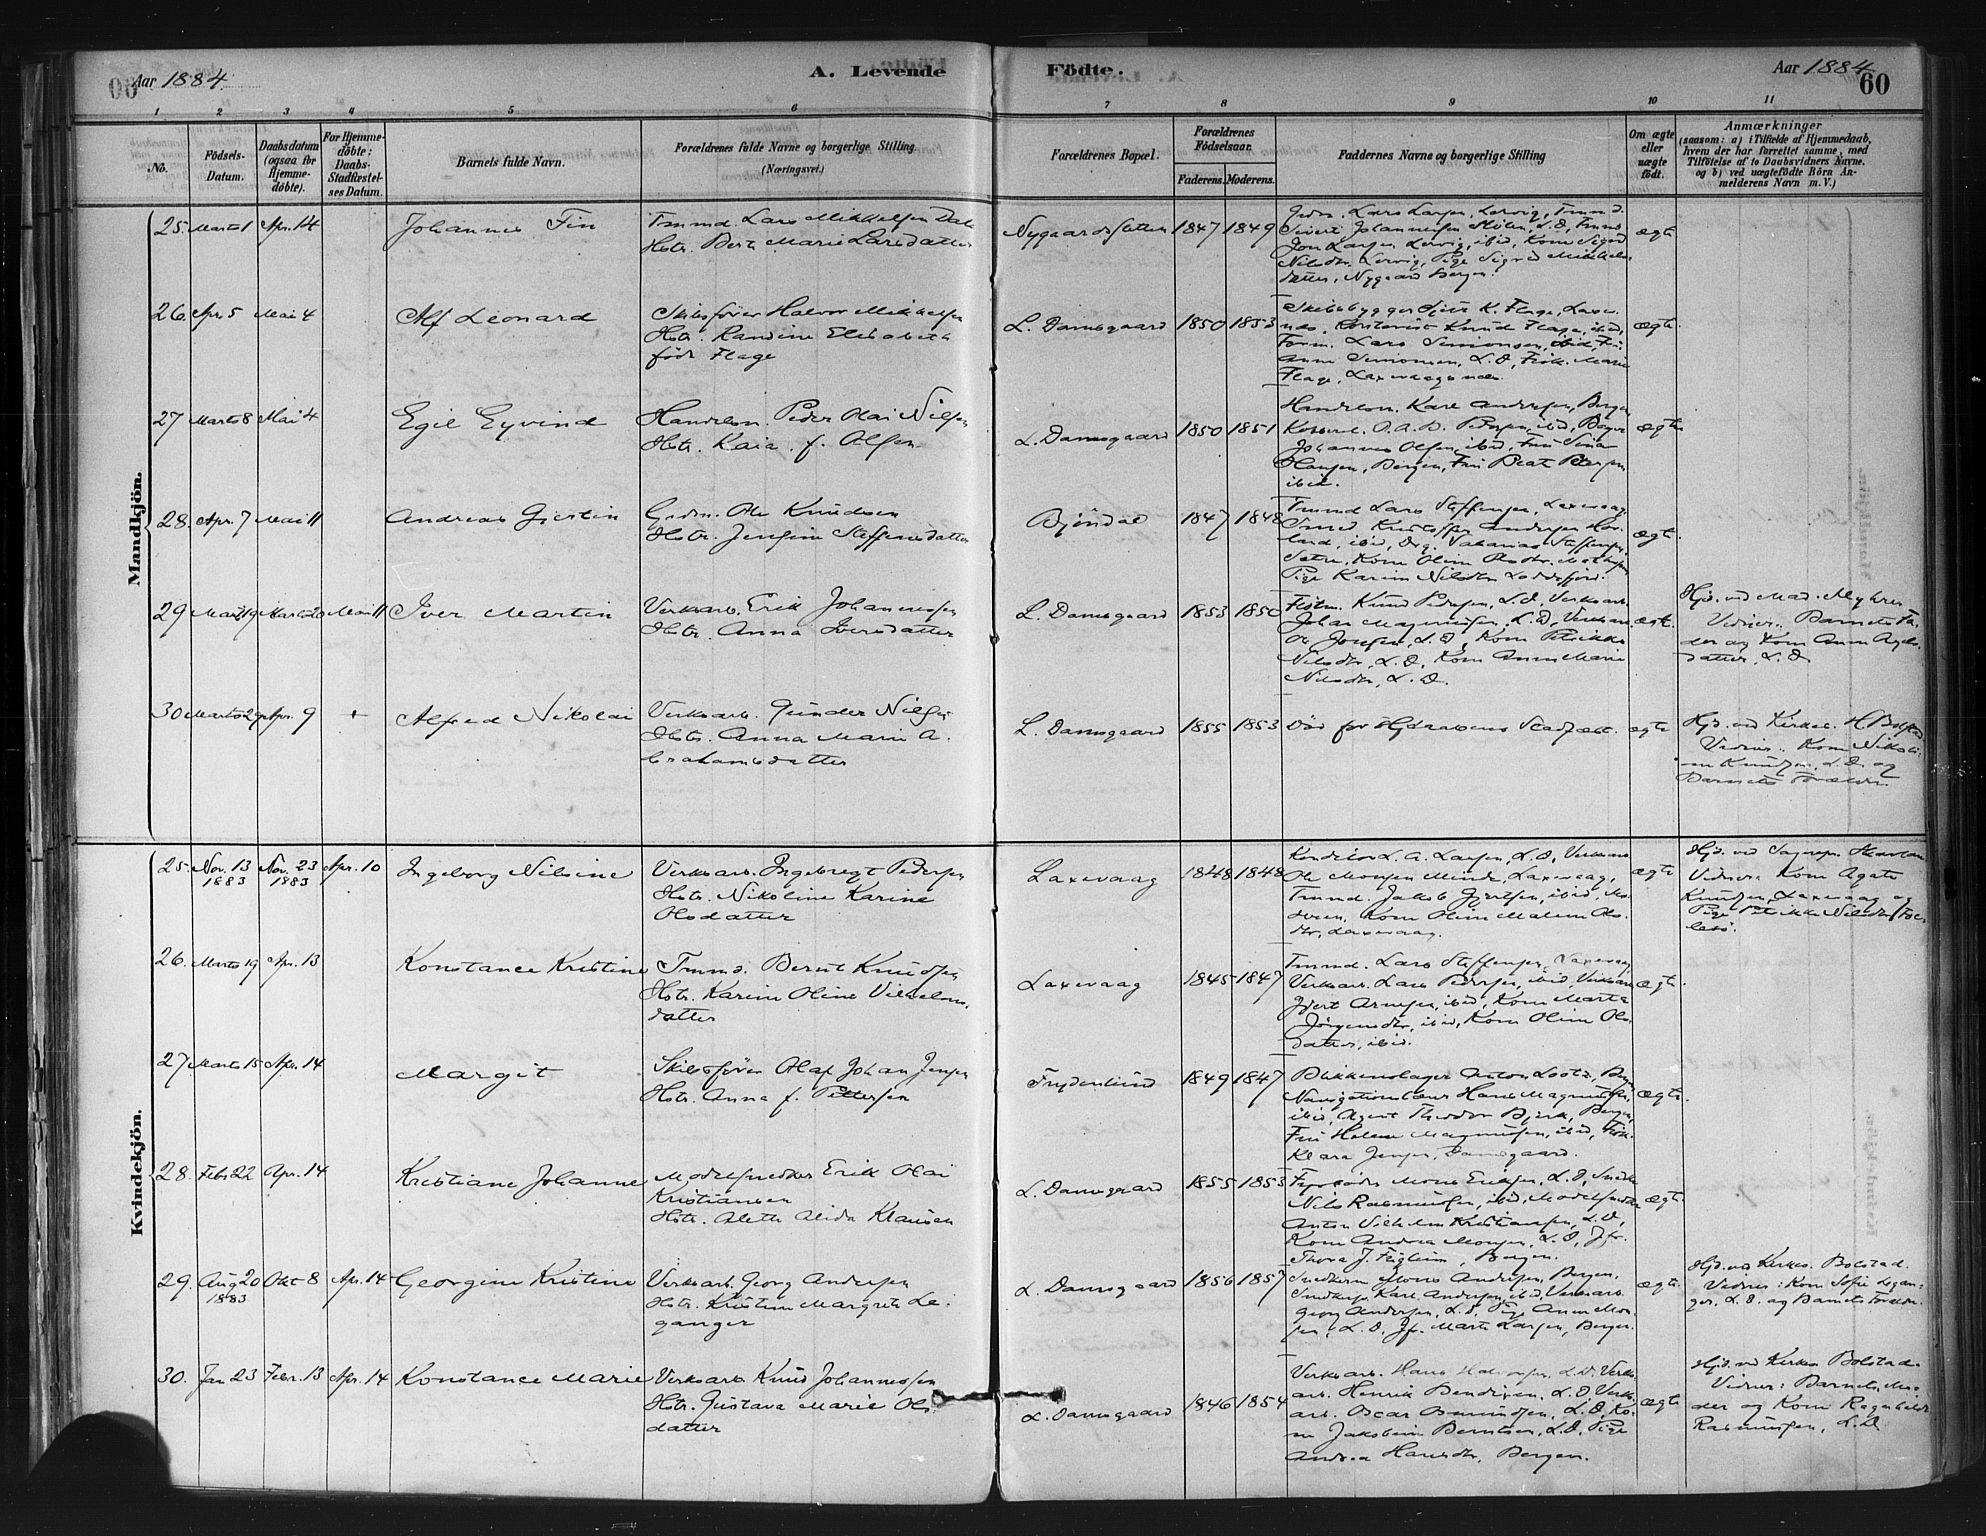 Aar 1884
A. Levende Födte.
Aar 1884
60
1 2 3 4 5 6 7 8 9 10 11
No.
Födsels-Datum.
Daabsdatum (ogsaa for Hjemme-döbte).
For Hjemme-döbte: Daabs-Stadfæstel-ses Datum.
Barnets fulde Navn.
Forældrenes fulde Navne og borgerlige Stilling. (Næringsvei.)
Forældrenes Bopæl.
Forældrenes Födselsaar.
Faderens. Moderens.
Faddernes Navne og borgerlige Stilling
Om ægte eller uægte födt.
Anmærkninger
(saasom: a) i Tilfælde af Hjemmedaab,
hvem der har forrettet samme, med
Tilföielse af to Daabsvidners Navne.
og b) ved uægtefödte Börn An-
melderens Navn m. V.)
Mandkjön.
25. Marts 1 Apr. 14 Johannes Fin
Trmmd. Lars Mikkelsen Dale
Hstr. Berte Marie Larsdatter
Nygaardssletten 1847 1849
Grdm. Lars Larsen, Lervig, Trmmd.
Sivert Johannesen Stölen, L.D., Trmmd.
Jon Larsen Lervig, ibid, Kone Sigrid
Nilsdtr. Lervig, Pige Sigrid Mikkels-
datter, Nygaard Bergen.
ægte
26. Apr. 5 Mai 4 Alf Leonard
Skibsförer Halvor Mikkelsen
Hstr. Randine Elisabeth
född Flage
L. Damsgaard 1850 1853
Skibsbygger Gjert K. Flage, Laxe-
Knud Flage, ibid,
Form. Lars Simonsen, ibid, Fru
Anne Simonsen, L.D., Frök. Marie
Flage, Laxevaagsnæs.
ægte
27 Marts 8 Mai 4 Egil Eyvind
Handelsm. Peder Olai Nilsen
Hstr. Kaia f. Olsen
L. Damsgaard 1850 1851
Handelsm. Karl Andersen, Bergen
O.A.B. Petersen, ibid, Bager
Johannes Olsen, ibid, Fru Sina
Hansen, Bergen, Fru Beate Petersen
ibid.
ægte
28. Apr. 7 Mai 11 Andreas Gjertin
Grdm. Ole Knudsen
Hstr. Jensine Steffensdatter
Bjöndal 1847 1848
Trmmd Lars Steffensen, Laxevaag,
Smed Kristoffer Andersen Hav-
land, ibid, Drg. Sakarias Steffensen,
Sætre, Kone Oline Olsdtr. Mathopen
Pige Karine Nilsdtr. Loddefjord.
ægte
29 Marts 19 Marts 20 Mai 11 Iver Martin
Verksarb. Erik Johannessen
Hstr. Anna Iversdatter
L. Damsgaard 1853 1850
Knud Pedersen, L.D., Verksarb.
Johan Magnussen, L.D., Verksarb
Ole Jonsen, L.D., Kone Petrikke
Nilsdtr, L.D., Kone Anne Marie
Nilsdtr, L.D.
ægte
Hjd. ved Mad. Myhre
Vidner: Barnets Fa-
der og Kone Anne Aages-
datter, L.D.
30 Marts 29 Apr. 9 + Alfred Nikolai
Verksarb. Gunder Nilsen
Hstr. Anna Marie A-
brahamsdatter
L. Damsgaard 1855 1853
Död för Hjdaabens Stadfæst.
ægte
Hjd. ved Kirkes. H Bolstad
Vidner: Kone Nikoli-
ne Knudsen, L.D. og
Barnets Forældre.
Kvindekjön.
25. Nov. 13 1883 Nov. 23 1883 Apr. 10 Ingeborg Nilsine
Verksarb. Ingebregt Pedersen
Hstr. Nikoline Karine
Olsdatter
Laxevaag 1848 1848
Konditor L. A. Larsen, L.D., Verksarb
Ole Monsen Minde, Laxevaag,
Trmmd. Jakob Gjertsen, ibid, Mo-
deren, Kone Oline Malene Ols-
dtr, Laxevaag.
ægte
Hjd. ved Sognepr.
Vidner: Kone Agate
Knudsen, Laxevaag og
Pige Petrikke Nilsdtr,
26. Marts 19 Apr. 13 Konstance Kristine
Trmmd. Bernt Knudsen
Hstr. Karine Oline Vilhelms-
datter
Laxevaag 1845 1847
Trmmd. Lars Steffensen, Laxevaag,
Verksarb. Lars Pedersen, ibid, Verksarb
Gjert Arnesen, ibid, Kone Marta
Jörgensdtr, ibid, Kone Oline Ols-
datter, ibid.
ægte
27 Marts 15 Apr. 14 Margit
Skibsförer Olaf Johan Jensen
Hstr. Anna f. Pettersen
Frydenlund 1849 1847
Blikkenslager Anton Lootz, Bergen
Navigationslærer Hans Magnussen,
ibid, Agent Theodor Bjerk, Bergen,
Fru Helene Magnussen, ibid, Frök.
Klara Jensen, Damsgaard.
ægte.
28. Febr 22 Apr. 14 Kristiane Johanne
Modelsnedker Erik Olai
Kristiansen
Hstr. Aleth Alida Klausen
L. Damsgaard 1855 1853
Fyrböder Mons Eriksen, L.D., Snedker
Nils Rasmussen, ibid, Modelsnedker
Anton Vilhelm Kristiansen, L.D.,
Kone Andrea Monsen, L.D., Jfr.
Thora J. Bergen.
ægte
29. Aug 20 1883 Okt 8 Apr. 14 Georgine Kristine
Verksarb. Georg Andersen
Hstr. Kristine Margrete Le-
ganger
L. Damsgaard 1856 1857
Snedkerm Mons Andersen, Bergen,
Snedkersv. Karl Andersen, ibid, Verksarb
Georg Andersen, L.D., Pige Anne Mon-
sen, L.D., Jfr. Marte Larsen, Bergen.
ægte
Hjd. ved Kirkes. Bolstad.
Vidner: Kone Sofie Legan-
ger, L.D. og Barnets Forældre.
30. Jan 23 Febr. 13 Apr. 14 Konstance Marie
Verksarb Knud Johannessen
Hstr. Gustava Marie Ols-
datter
L. Damsgaard 1846 1854
Verksarb. Hans Halvorsen, L.D. Verks-
arb. Henrik Bendixen, L.D. Verks-
arb. Oscar L.D., Ko-
ne Jakobine Berntsen, L.D., Pige
Andrea Hansdtr, Bergen.
ægte
Hjd. ved Kirkes Bolstad.
Vidner: Barnets Mo-
der og Kone Ragnhilde
Rasmussen, L.D.